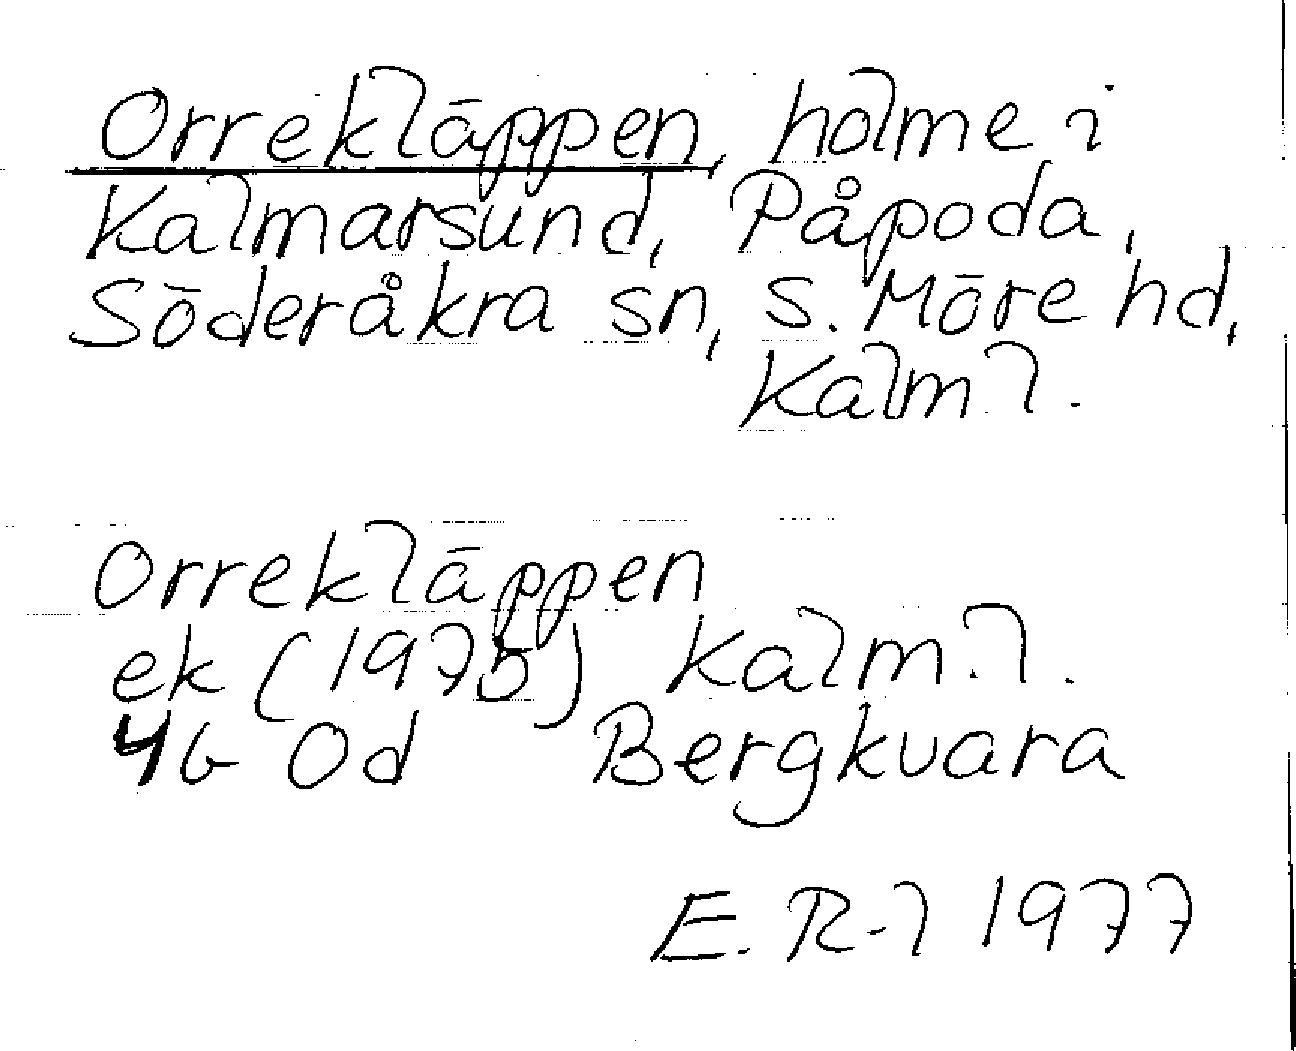 Orrekläppen, holme i
Kalmarsund, Påpoda,
Söderåkra sn, S. Möre hd,
Kalm.l.
Orrekläppen
ek (1975) Kalm.l.
4G 0d Bergkvara
E. R-l 1977